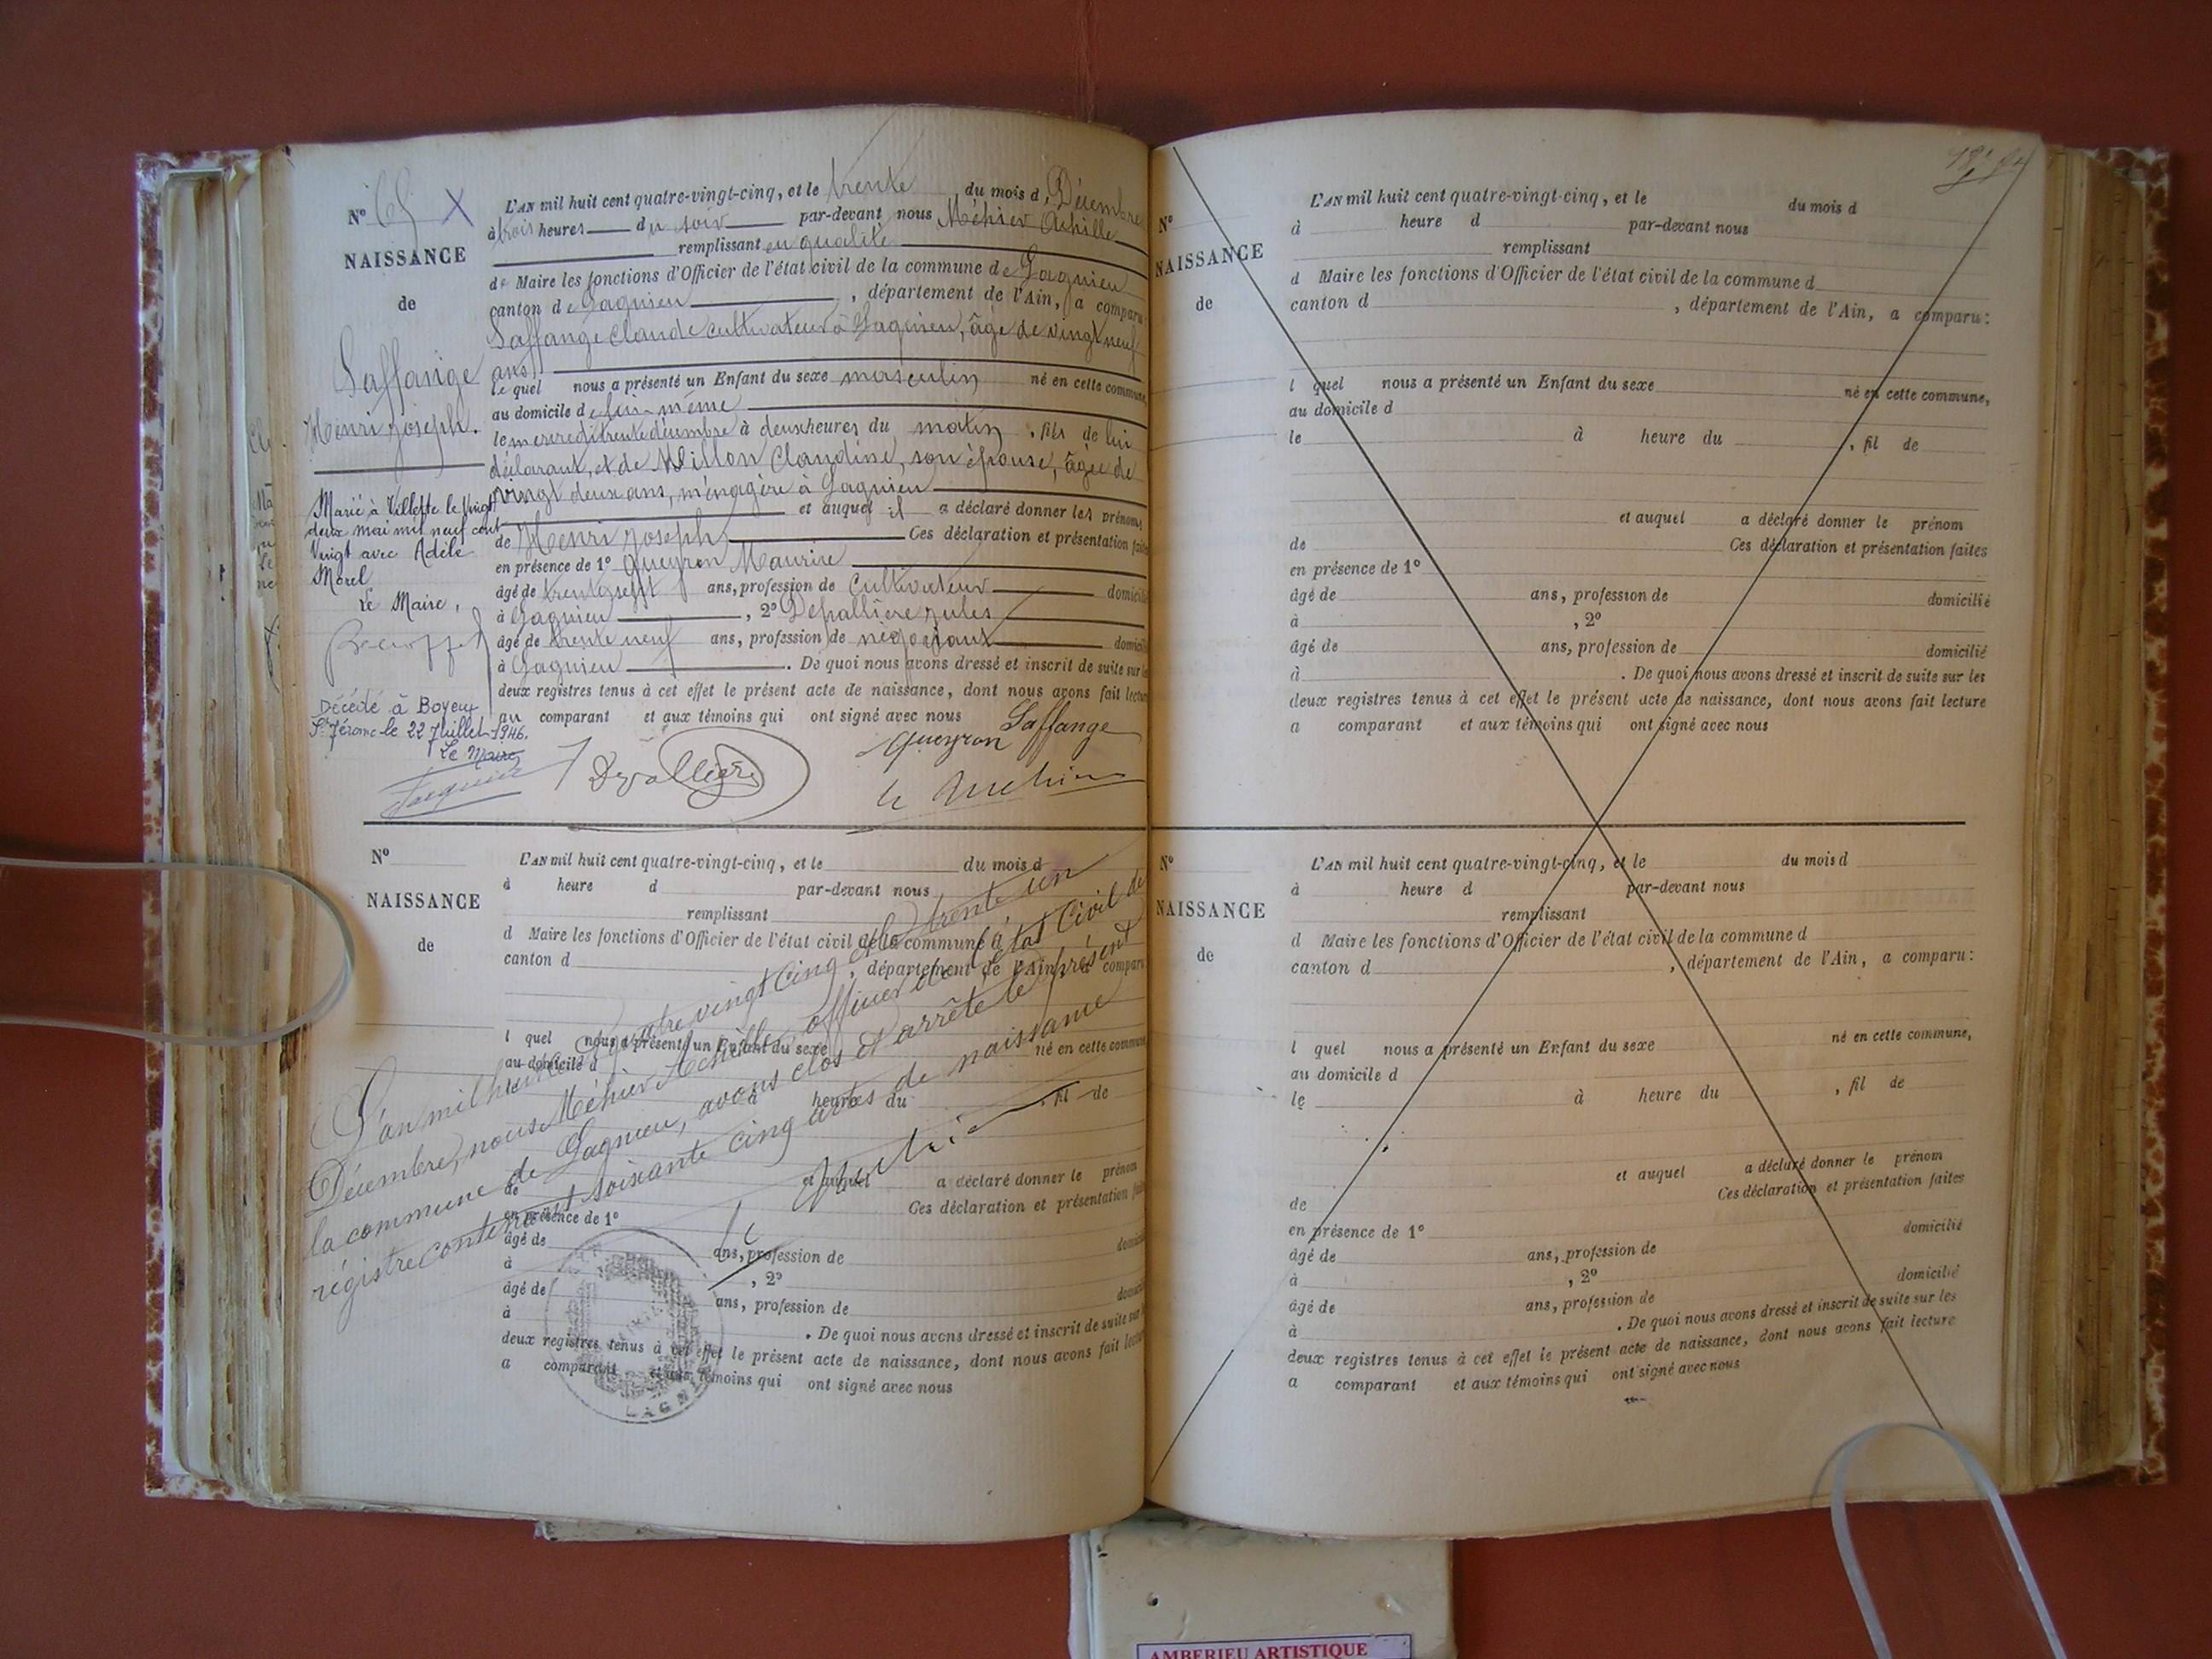 Nº 65 X
NAISSANCE
de
Laffange
Henri Joseph.
Marié à Villette le Vingt
deux mai mil neuf cent
Vingt avec Adèle
Morel
Le Maire,
Décédé à Boyeux
St Jérôme le 22 Juillet 1946.
Le Maire
L'AN mil huit cent quatre-vingt-cinq, et le trente du mois d Décembre
à trois heures du soir par-devant nous Méhier Achille
remplissant en qualité
de Maire les fonctions d'Officier de l'état civil de la commune de Lagnieu
canton de Lagnieu, département de l'Ain, a comparu:
Laffange Claude cultivateur à Lagnieu, âgé de vingt neuf
ans
le quel nous a présenté un Enfant du sexe masculin né en cette commune,
au domicile de lui-même
le mercredi trente décembre à deux heures du matin, fils de lui
déclarant, et de Millon Claudine, son épouse, âgée de
vingt deux ans, ménagère à Lagnieu
et auquel il a déclaré donner les prénoms
de Henri Joseph Ces déclaration et présentation faites
en présence de 1º Queyron Maurice
âgé de trente sept ans, profession de Cultivateur domicilié
à Lagnieu, 2º Depallière Jules
âgé de trente neuf ans, profession de négociant domicilié
à Lagnieu. De quoi nous avons dressé et inscrit de suite sur les
deux registres tenus à cet effet le présent acte de naissance, dont nous avons fait lecture
au comparant et aux témoins qui ont signé avec nous
Laffange
Queyron
Depallière
Nº
NAISSANCE
de
L'AN mil huit cent quatre-vingt-cinq, et le du mois d
à heure d par-devant nous
remplissant
d Maire les fonctions d'Officier de l'état civil de la commune d
canton d, département de l'Ain, a comparu
l quel nous a présenté un Enfant du sexe né en cette commune
au domicile d
le à heure du, fil de
et auquel a déclaré donner le prénom
de Ces déclaration et présentation faites
en présence de 1º
âgé de ans, profession de domicilié
à, 2º
âgé de ans, profession de domicilié
à. De quoi nous avons dressé et inscrit de suite sur les
deux registres tenus à cet effet le présent acte de naissance, dont nous avons fait lecture
a comparant et aux témoins qui ont signé avec nous
L'an mil huit cent quatre vingt cinq et le trente un
Décembre, nous Méhier Achille officier de l'état Civil de
la commune de Lagnieu, avons clos et arrêté le présent
régistre contenant soixante cinq actes de naissance
Nº
NAISSANCE
de
L'AN mil huit cent quatre-vingt-cinq, et le du mois d
à heure d par-devant nous
remplissant
d Maire les fonctions d'Officier de l'état civil de la commune d
canton d, département de l'Ain, a comparu:
l quel nous a présenté un Enfant du sexe né en cette commune,
au domicile d
le à heure du, fil de
et auquel a déclaré donner le prénom
de Ces déclaration et présentation faites
en présence de 1º
âgé de ans, profession de domicilié
à, 2º
âgé de ans, profession de domicilié
à. De quoi nous avons dressé et inscrit de suite sur les
deux registres tenus à cet effet le présent acte de naissance, dont nous avons fait lecture
a comparant et aux témoins qui ont signé avec nous
Nº
NAISSANCE
de
L'AN mil huit cent quatre-vingt-cinq, et le du mois d
à heure d par-devant nous
remplissant
d Maire les fonctions d'Officier de l'état civil de la commune d
canton d, département de l'Ain, a comparu:
l quel nous a présenté un Enfant du sexe né en cette commune,
au domicile d
le à heure du, fil de
et auquel a déclaré donner le prénom
de Ces déclaration et présentation faites
en présence de 1º
âgé de ans, profession de domicilié
à, 2º
âgé de ans, profession de domicilié
à. De quoi nous avons dressé et inscrit de suite sur les
deux registres tenus à cet effet le présent acte de naissance, dont nous avons fait lecture
a comparant et aux témoins qui ont signé avec nous
AMBERIEU ARTISTIQUE